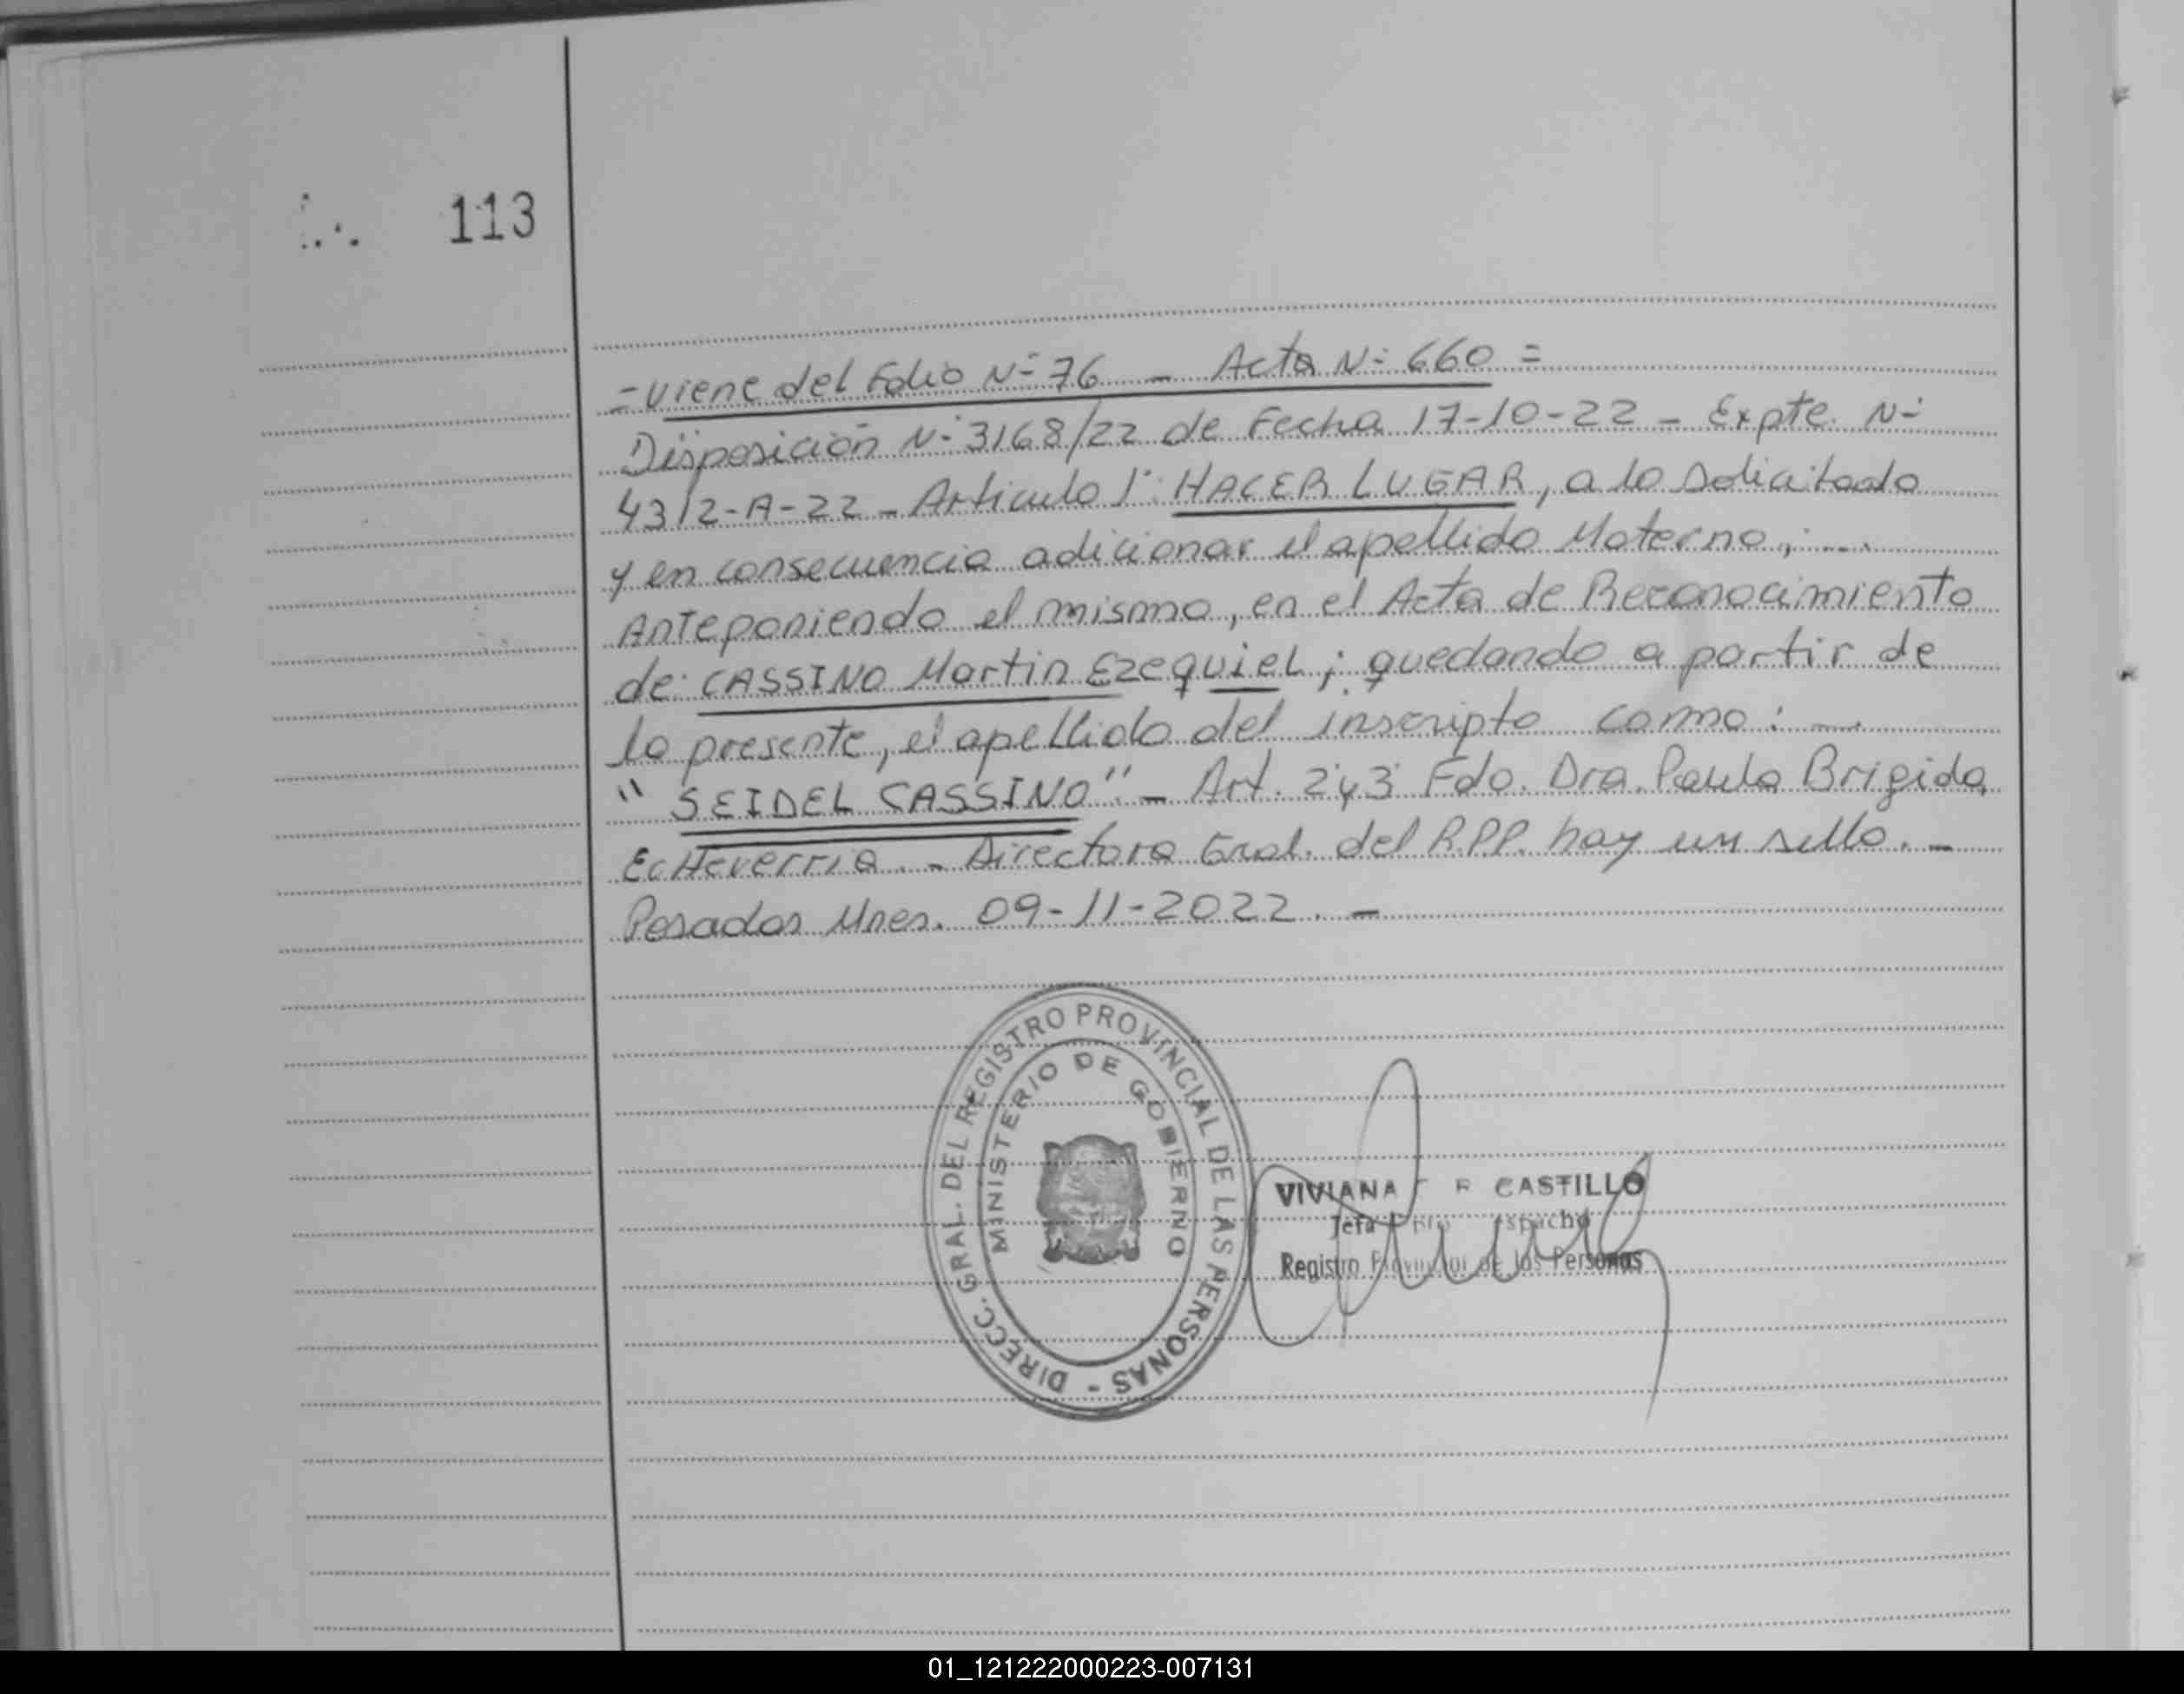 113
- Viene del Folio N° 76 - Acta N° 660 =
Disposición N° 3168/22 de Fecha 17-10-22 - Expte. N°
4312-A-22 - Articulo 1° HACER LUGAR, a lo solicitado
y en consecuencia adicionar el apellido Materno,
Anteponiendo el mismo, en el Acta de Reconocimiento
de: CASSINO Martin Ezequiel; quedando a partir de
la presente, el apellido del inscripto como: -
" SEIDEL CASSINO" - Art. 2 y 3 Fdo. Dra. Paula Brigida
Echeverria. - Directora Gral. del R.P.P. hay un sello. -
Posadas Mnes. 09-11-2022. -
DIRECC. GRAL. DEL REGISTRO PROVINCIAL DE LAS PERSONAS -
MINISTERIO DE GOBIERNO
VIVIANA CASTILLO
Jefa
Registro Provincial de las Personas
01_121222000223-007131